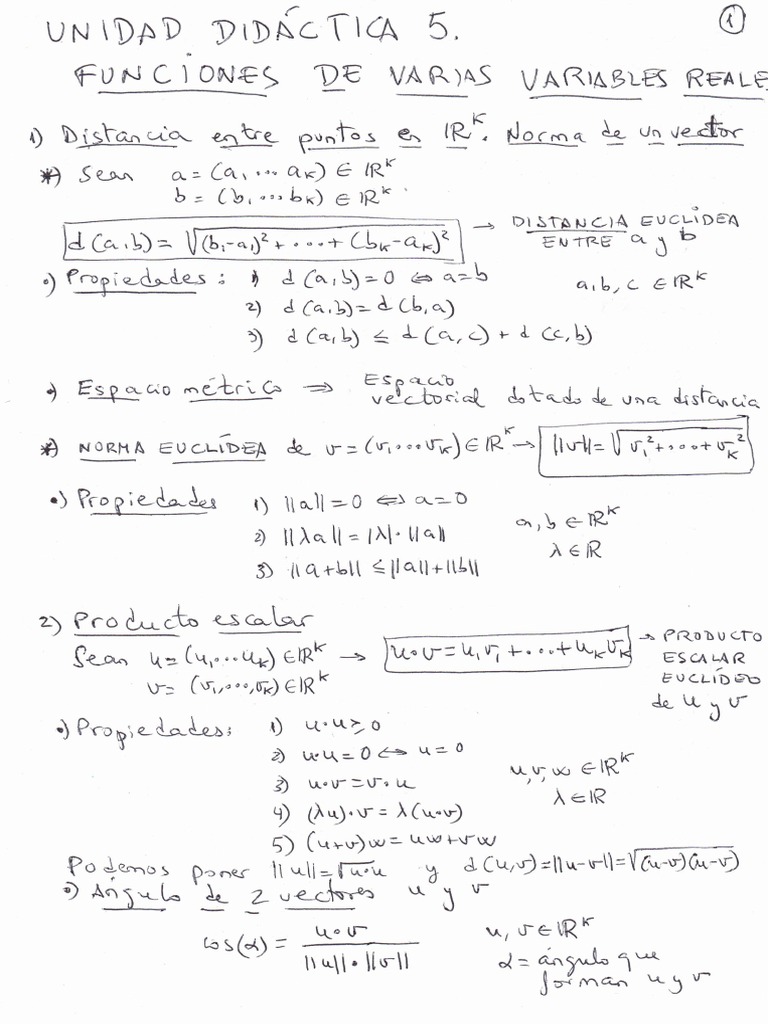 ①
UNIDAD DIDÁCTICA 5.
FUNCIONES DE VARIAS VARIABLES REALE
1) Distancia entre puntos en ℝᴷ. Norma de un vector
*) Sean a = (a₁ ... aₖ) ∈ ℝᴷ
b = (b₁ ... bₖ) ∈ ℝᴷ.
d(a,b) = √((b₁-a₁)² + .... + (bₖ-aₖ)²) → DISTANCIA EUCLÍDEA
ENTRE a y b
•) Propiedades: 1) d(a,b) = 0 ⇔ a=b a,b,c ∈ ℝᴷ
2) d(a,b) = d(b,a)
3) d(a,b) ≤ d(a,c) + d(c,b)
•) Espacio métrico ⇒ Espacio
vectorial dotado de una distancia
*) NORMA EUCLÍDEA de v = (v₁ ... vₖ) ∈ ℝᴷ → ||v|| = √(v₁² + .... + vₖ²)
•) Propiedades 1) ||a|| = 0 ⇔ a = 0
2) ||λa|| = |λ|·||a|| a,b ∈ ℝᴷ
3) ||a+b|| ≤ ||a|| + ||b|| λ ∈ ℝ
2) Producto escalar
Sean u = (u₁ ... uₖ) ∈ ℝᴷ → u•v = u₁v₁ + .... + uₖvₖ → PRODUCTO
v = (v₁, ..., vₖ) ∈ ℝᴷ ESCALAR
EUCLÍDEO
de u y v
•) Propiedades: 1) u•u ≥ 0
2) u•u = 0 ⇔ u = 0
3) u•v = v•u u,v,w ∈ ℝᴷ
4) (λu)•v = λ(u•v) λ ∈ ℝ
5) (u+v)w = uw + vw
Podemos poner ||u|| = √u•u y d(u,v) = ||u-v|| = √(u-v)(u-v)
•) Ángulo de 2 vectores u y v
cos(α) = u•v / ||u||•||v|| u, v ∈ ℝᴷ
α = ángulo que
forman u y v